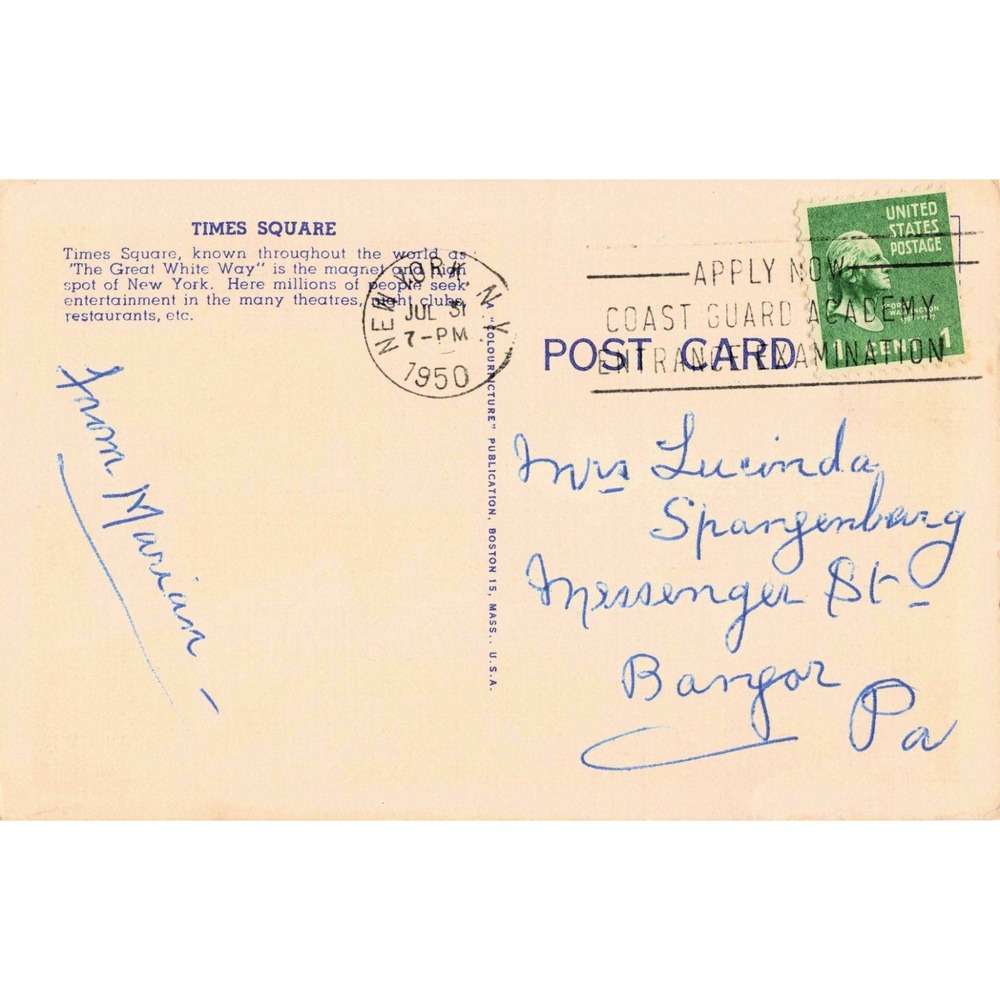 TIMES SQUARE
Times Square, known throughout the world as
"The Great White Way" is the magnet and high
spot of New York. Here millions of people seek
entertainment in the many theatres, night clubs,
restaurants, etc.
NEW YORK, N.Y.
JUL 31
7-PM
1950
APPLY NOW
COAST GUARD ACADEMY
ENTRANCE EXAMINATION
UNITED
STATES
POSTAGE
GEORGE
WASHINGTON
1789-1797
1 CENT 1
POST CARD
A "COLOURPICTURE" PUBLICATION, BOSTON 15, MASS., U.S.A.
From Marian -
Mrs Lucinda
Spangenburg
Messenger St -
Bangor
Pa